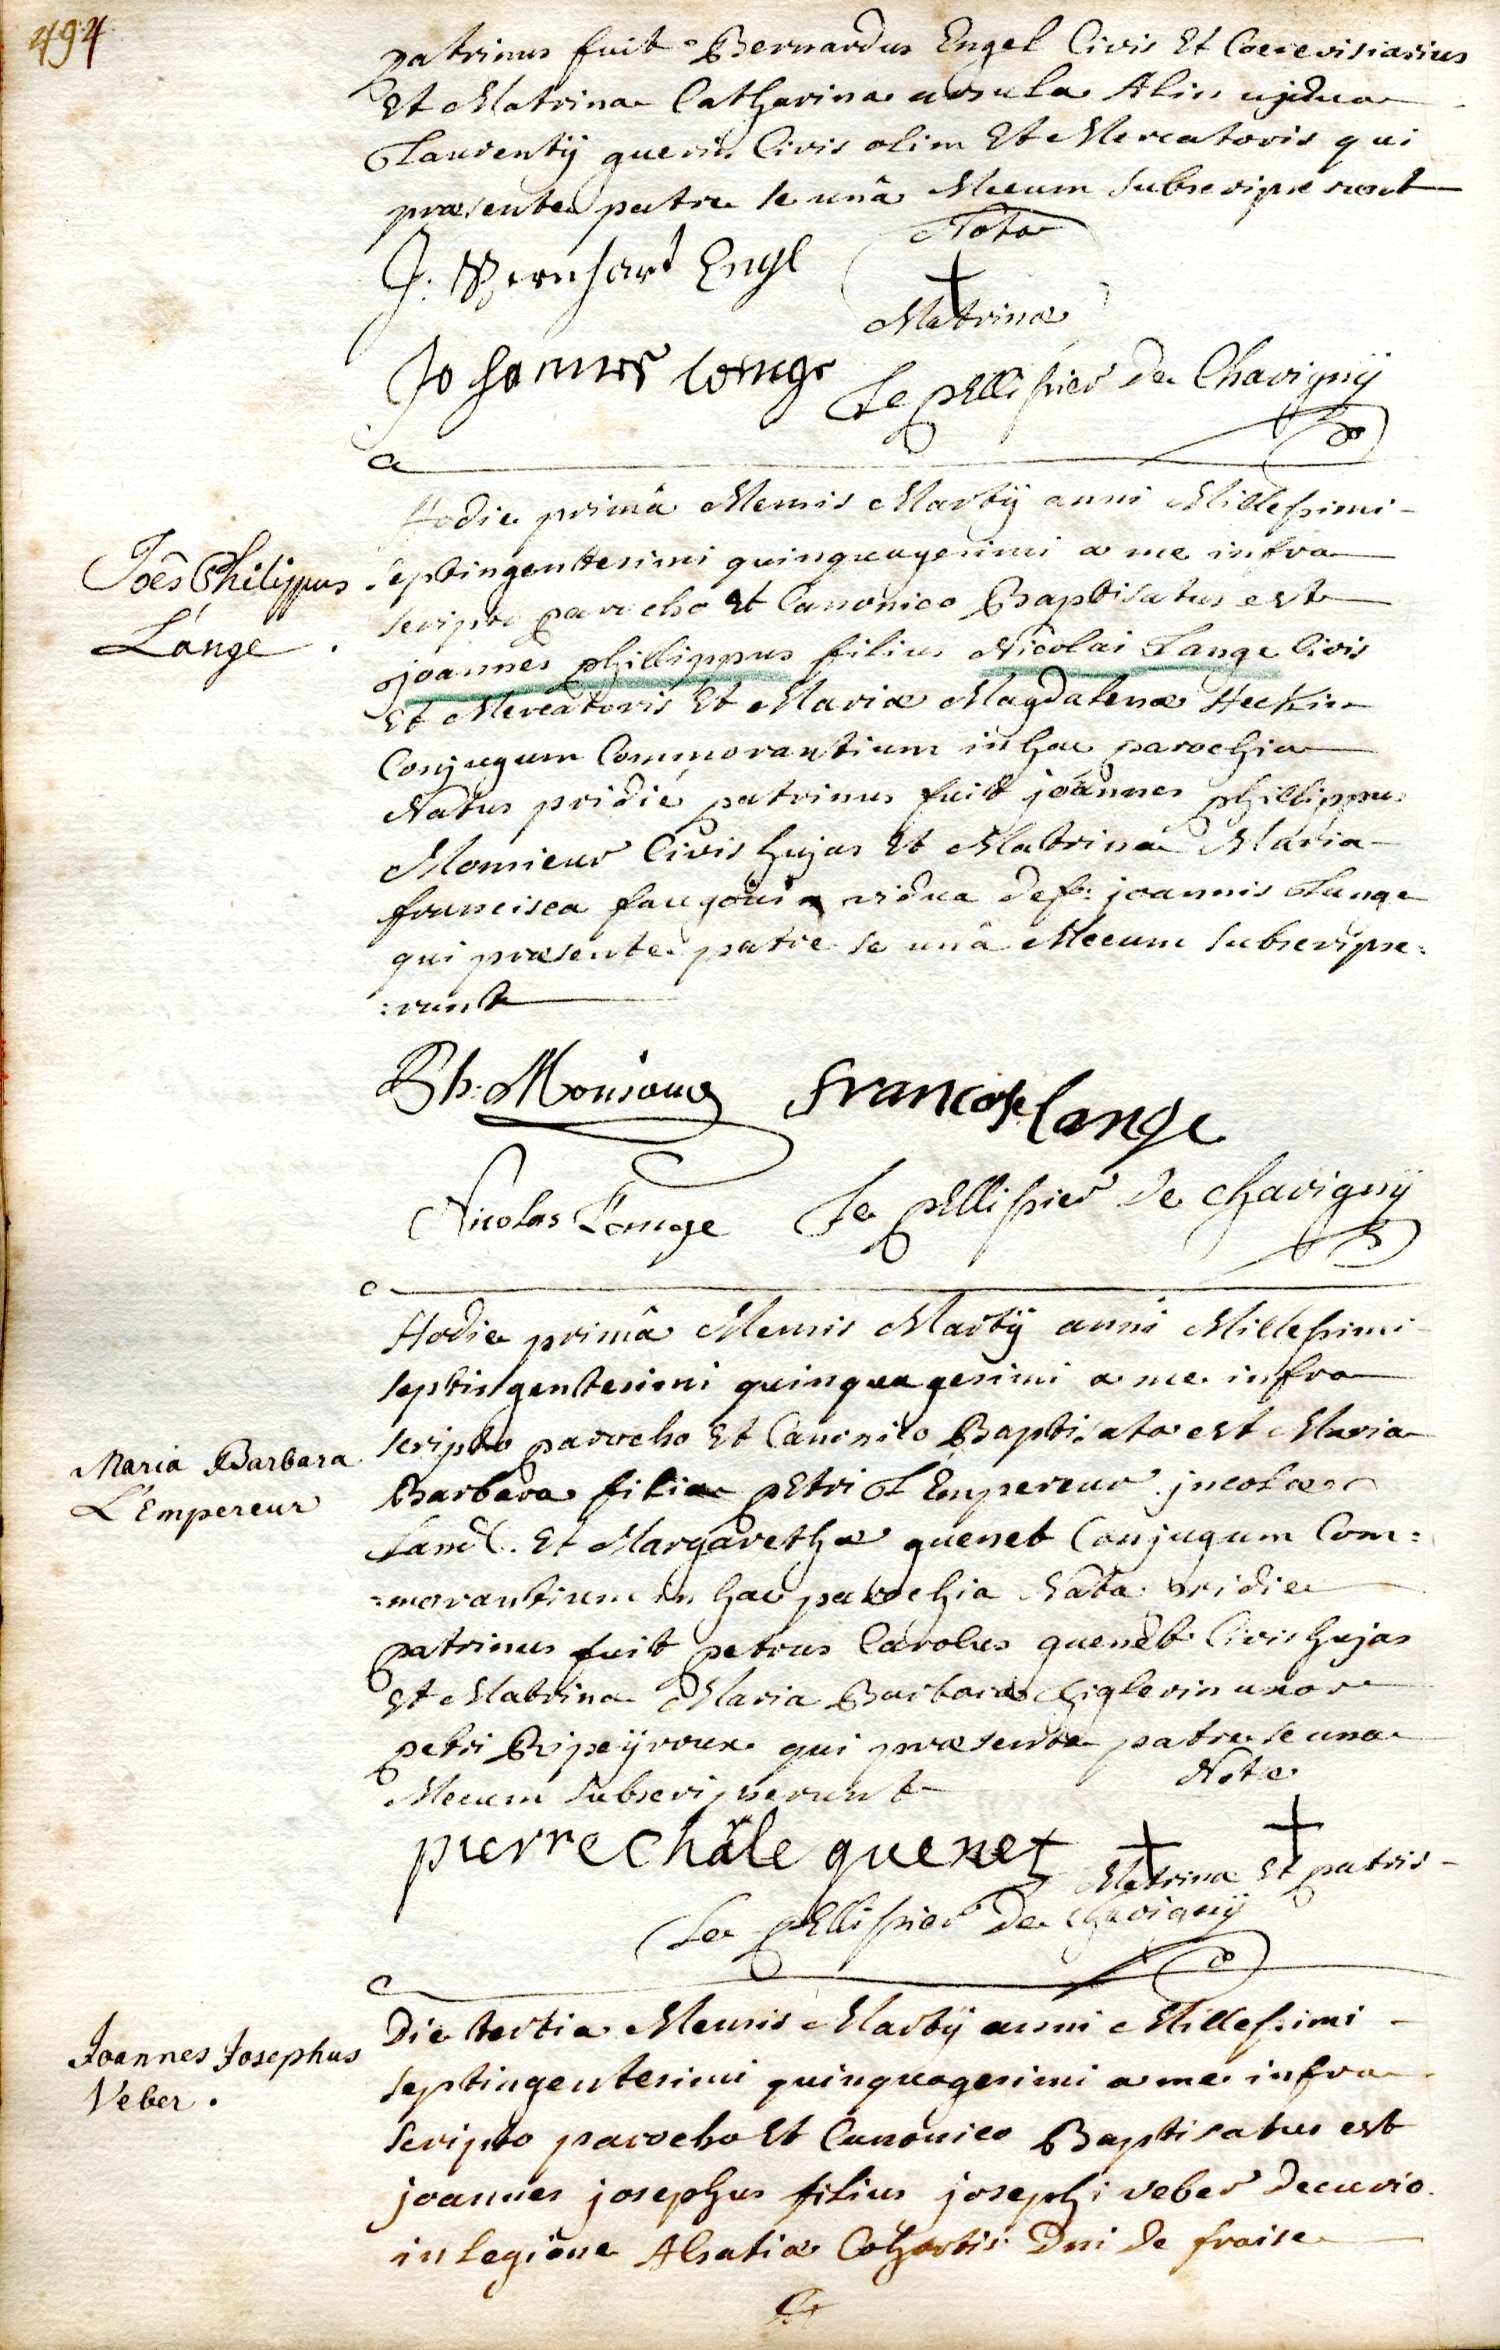 494
patrinus fuit Bernardus Engel Civis Et Coerevisiarius
Et Matrina Catharina ursula Alin vidua
Laurentÿ guerin Civis olim Et Mercatoris qui
præsente patre se unâ Mecum subscripserunt
Nota
J: Bernhart Engl
†
Matrinæ
Johannes lange Le pElissier de Chavignÿ
Hodie primâ Mensis Martÿ anni Millesimi
Joês Philippus
Lange.
septingentesimi quinquagesimi a me infra
scripto parocho Et Canonico Baptisatus est
joannes phillippus filius Nicolai Lange Civis
Et Mercatoris Et Mariæ Magdalenæ Heckin
Conjugum Commorantium in hac parochia
Natus pridie patrinus fuit joannes phillippus
Momieur Civis hujas Et Matrina Maria
francisca vidua def: joannis Lange
qui præsente patre se unâ Mecum subscripse:
:runt
Ph: francois lange
Nicolas Lange Le pEllissier de chavignÿ
Hodie primâ Mensis Martÿ anni Millesimi
septingentesimi quinquagesimi a me infra
Maria Barbara
L'Empereur
scripto parocho Et Canonico Baptisata est Maria
Barbara filia pEtri L'Empereur jncolæ
Land. Et Margarethæ quenet Conjugum Com:
:morantium in hac parochia Nata pridie
patrinus fuit petrus Carolus quenet Civis hujas
Et Matrina Maria Barbara Ziglerin uxor
petri Ripeÿroux qui præsente patre se una
Mecum subscripserunt
Notæ
pierre châle quenet † †
Matrinæ Et patris
Le pEllissier De chavignÿ
Joannes Josephus
Veber.
Die tertia Mensis Martÿ anni Millesimi
septingentesimi quinquagesimi a me infra
scripto parocho Et Canonico Baptisatus est
joannes josephus filius josephi veber decurio
in legione Alsatiæ Cohortis Dni de fraise